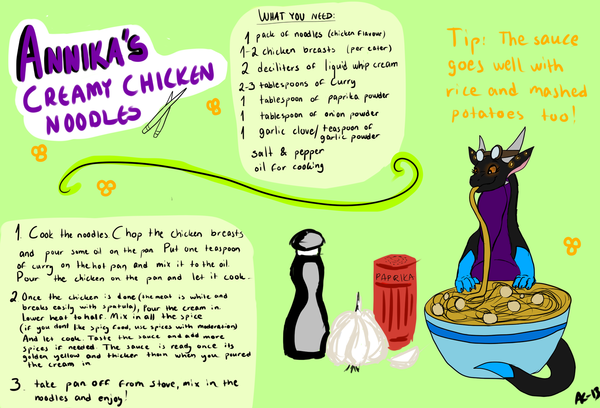 ANNIKA'S
CREAMY CHICKEN
NOODLES
WHAT YOU NEED:
1 pack of noodles (chicken flavour)
1-2 chicken breasts (per eater)
2 deciliters of liquid whip cream
2-3 tablespoons of curry
1 tablespoon of paprika powder
1 tablespoon of onion powder
1 garlic clove/teaspoon of
garlic powder
salt & pepper
oil for cooking
Tip: The sauce
goes well with
rice and mashed
potatoes too!
1. Cook the noodles. Chop the chicken breasts
and pour some oil on the pan. Put one teaspoon
of curry on the hot pan and mix it to the oil.
Pour the chicken on the pan and let it cook.
2 Once the chicken is done (the meat is white and
breaks easily with spatula), pour the cream in.
Lower heat to half. Mix in all the spice
(if you dont like spicy food, use spices with moderation)
And let cook. Taste the sauce and add more
spices if needed. The sauce is ready once its
golden yellow and thicker than when you poured
the cream in
3. take pan off from stove, mix in the
noodles and enjoy!
PAPRIKA